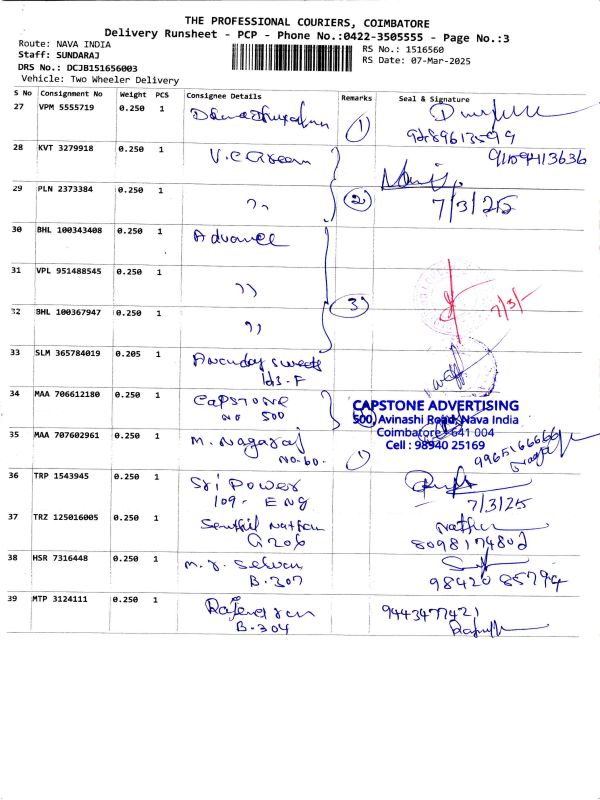 THE PROFESSIONAL COURIERS, COIMBATORE
Delivery Runsheet - PCP - Phone No.:0422-3505555 - Page No.:3
Route: NAVA INDIA
Staff: SUNDARAJ
DRS No.: DCJB151656003
Vehicle: Two Wheeler Delivery
RS No.: 1516560
RS Date: 07-Mar-2025
S No Consignment No Weight PCS Consignee Details Remarks Seal & Signature
27 VPM 5555719 0.250 1 1)
28 KVT 3279918 0.250 1 V.C Green
29 PLN 2373384 0.250 1 ,, 2) 7/3/25
30 BHL 100343408 0.250 1 Advance
31 VPL 951488545 0.250 1 ,,
32 BHL 100367947 0.250 1 ,, 3) 7/3/-
33 SLM 365784019 0.205 1 sweets
103-F
34 MAA 706612180 0.250 1 CAPSTONE
NO 500
CAPSTONE ADVERTISING
500, Avinashi Road, Nava India
Coimbatore - 641 004
Cell : 98940 25169
35 MAA 707602961 0.250 1 M. Nagaraj
NO-60. 1) 9965166666
Nagaraj
36 TRP 1543945 0.250 1 Sri Power
109- ENG 7/3/25
37 TRZ 125016005 0.250 1 Senthil Nathan Nathan
G 206 8098174802
38 HSR 7316448 0.250 1 M. S. Selvan
B-307 98420 85794
39 MTP 3124111 0.250 1 Rajendran 9443477421
B-304